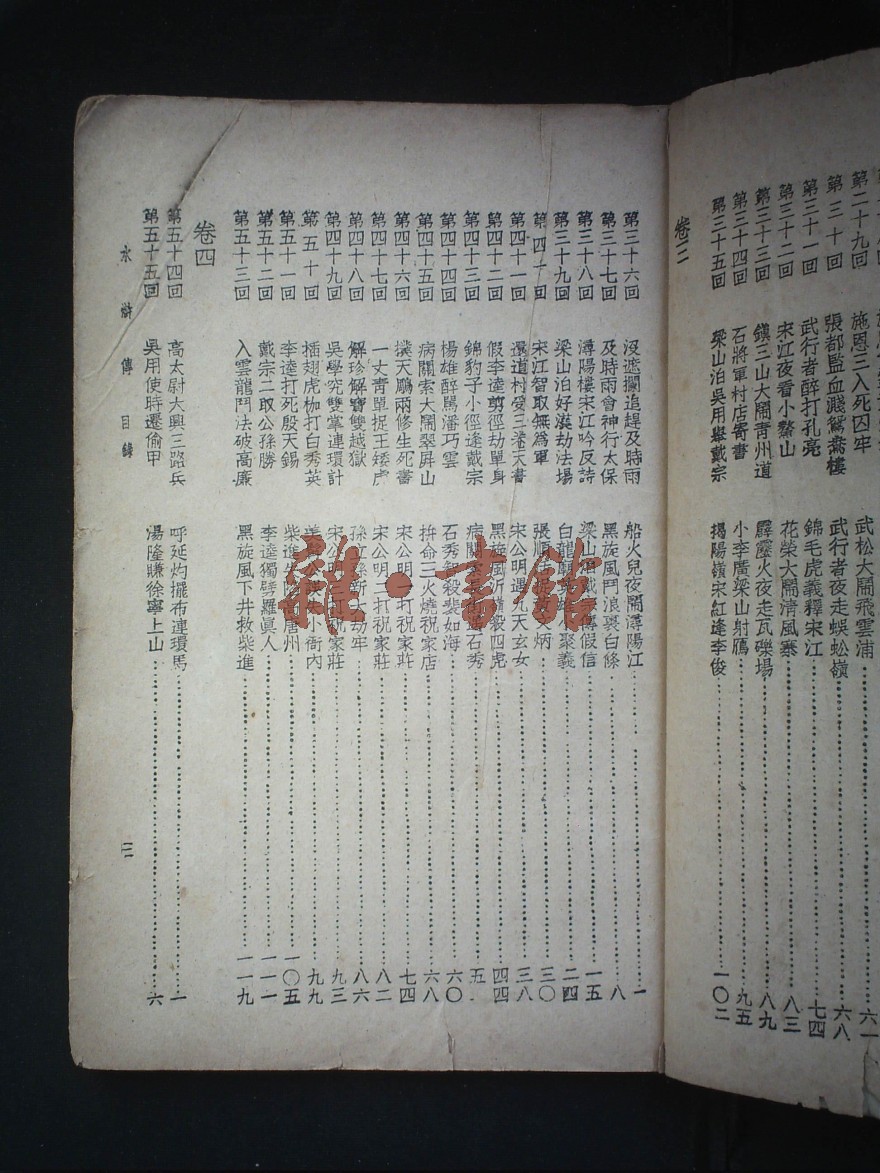 第二十九回 施恩三入死囚牢 武松大鬧飛雲浦……六一
第三十回 張都監血濺鴛鴦樓 武行者夜走蜈蚣嶺……六八
第三十一回 武行者醉打孔亮 錦毛虎義釋宋江……七四
第三十二回 宋江夜看小鰲山 花榮大鬧清風寨……八三
第三十三回 鎮三山大鬧青州道 霹靂火夜走瓦礫場……八九
第三十四回 石將軍村店寄書 小李廣梁山射鴈……九五
第三十五回 梁山泊吳用舉戴宗 揭陽嶺宋江逢李俊……一〇二
卷三
第三十六回 沒遮攔追趕及時雨 船火兒夜鬧潯陽江……一
第三十七回 及時雨會神行太保 黑旋風鬥浪裏白條……八
第三十八回 潯陽樓宋江吟反詩 梁山泊戴宗傳假信……一五
第三十九回 梁山泊好漢劫法場 白龍廟英雄小聚義……二四
第四十回 宋江智取無為軍 張順活捉黃文炳……三〇
第四十一回 還道村受三卷天書 宋公明遇九天玄女……三八
第四十二回 假李逵剪徑劫單身 黑旋風沂嶺殺四虎……四四
第四十三回 錦豹子小徑逢戴宗 病關索長街遇石秀……五
第四十四回 楊雄醉罵潘巧雲 石秀智殺裴如海……六〇
第四十五回 病關索大鬧翠屏山 拚命三火燒祝家店……六八
第四十六回 撲天鵰兩修生死書 宋公明一打祝家莊……七四
第四十七回 一丈青單捉王矮虎 宋公明二打祝家莊……八二
第四十八回 解珍解寶雙越獄 孫立孫新大劫牢……八六
第四十九回 吳學究雙掌連環計 宋公明三打祝家莊……九三
第五十回 插翅虎枷打白秀英 美髯公誤失小衙內……九九
第五十一回 李逵打死殷天錫 柴進失陷高唐州……一〇五
第五十二回 戴宗二取公孫勝 李逵獨劈羅眞人……一一一
第五十三回 入雲龍鬥法破高廉 黑旋風下井救柴進……一一九
卷四
第五十四回 高太尉大興三路兵 呼延灼擺布連環馬……一
第五十五回 吳用使時遷偷甲 湯隆賺徐寧上山……六
水滸傳目錄 三
雜·書館